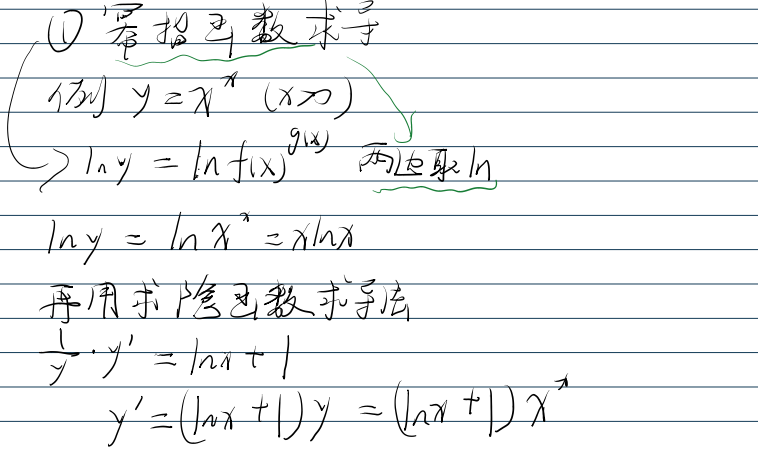 ① 幂指函数求导
例 y = x^x (x>0)
ln y = ln f(x)^g(x) 两边取ln
ln y = ln x^x = x ln x
再用求隐函数求导法
1/y · y' = ln x + 1
y' = (ln x + 1) y = (ln x + 1) x^x